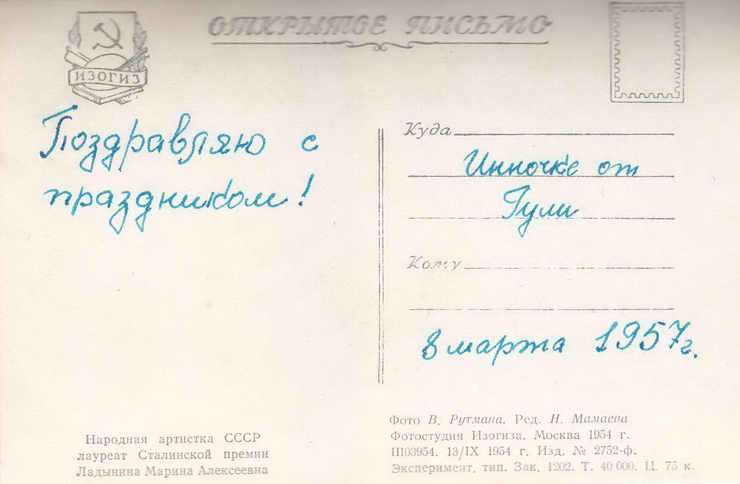 ОТКРЫТОЕ ПИСЬМО
ИЗОГИЗ
Поздравляю с
праздником!
Куда
Инночке от
Гули
Кому
8 марта 1957г.
Народная артистка СССР
лауреат Сталинской премии
Ладынина Марина Алексеевна
Фото В. Рутмана. Ред. Н. Мамаева
Фотостудия Изогиза. Москва 1954 г.
Ш03954. 13/IX 1954 г. Изд. № 2752-ф.
Эксперимент. тип. Зак. 1202. Т. 40 000. Ц. 75 к.